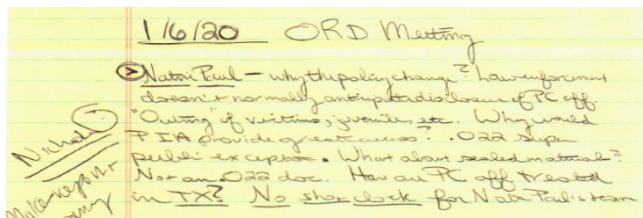 1/6/20 ORD Meeting
Nate Paul – why the policy change? Law enforcement
doesn't normally anticipate disclosure of PC aff.
"Outing" of victims, juveniles, etc. Why would
PIA provide greater access? .022 super
public exception. What about sealed material?
Not an .022 doc. How are PC aff treated
in TX? No shot clock for Nate Paul's team
Make report